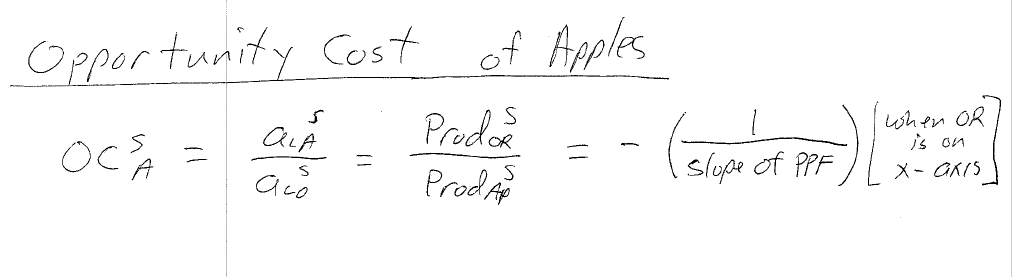 Opportunity Cost of Apples
OC^S_A = a_LA^S / a_LO^S = Prod_OR^S / Prod_AP^S = - (1 / slope of PPF) [when OR is on x-axis]